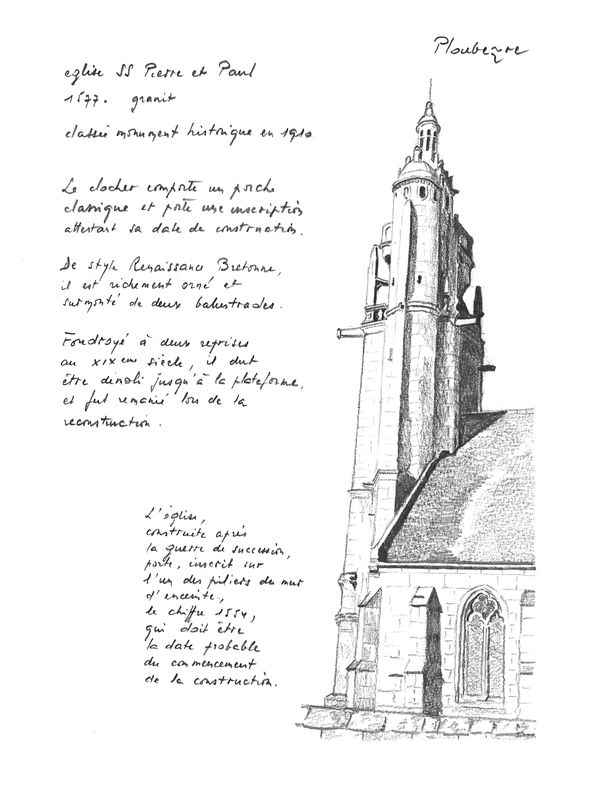 Ploubezre
eglise SS Pierre et Paul
1577. granit
classée monument historique en 1910
Le clocher comporte un porche
classique et porte une inscription
attestant sa date de construction.
De style Renaissance Bretonne,
il est richement orné et
surmonté de deux balustrades.
Foudroyé à deux reprises
au XIXeme siècle, il dut
être démoli jusqu'à la plateforme,
et fut remanié lors de la
reconstruction.
L'église,
construite après
la guerre de succession,
porte, inscrit sur
l'un des piliers du mur
d'enceinte,
le chiffre 1554,
qui doit être
la date probable
du commencement
de la construction.